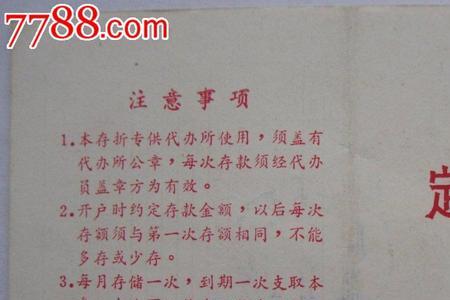 7788.com
注意事项
1.本存折专供代办所使用，须盖有
代办所公章，每次存款须经代办
员盖章方为有效。
2.开户时约定存款金额，以后每次
存额须与第一次存额相同，不能
多存或少存。
3.每月存储一次，到期一次支取本
定